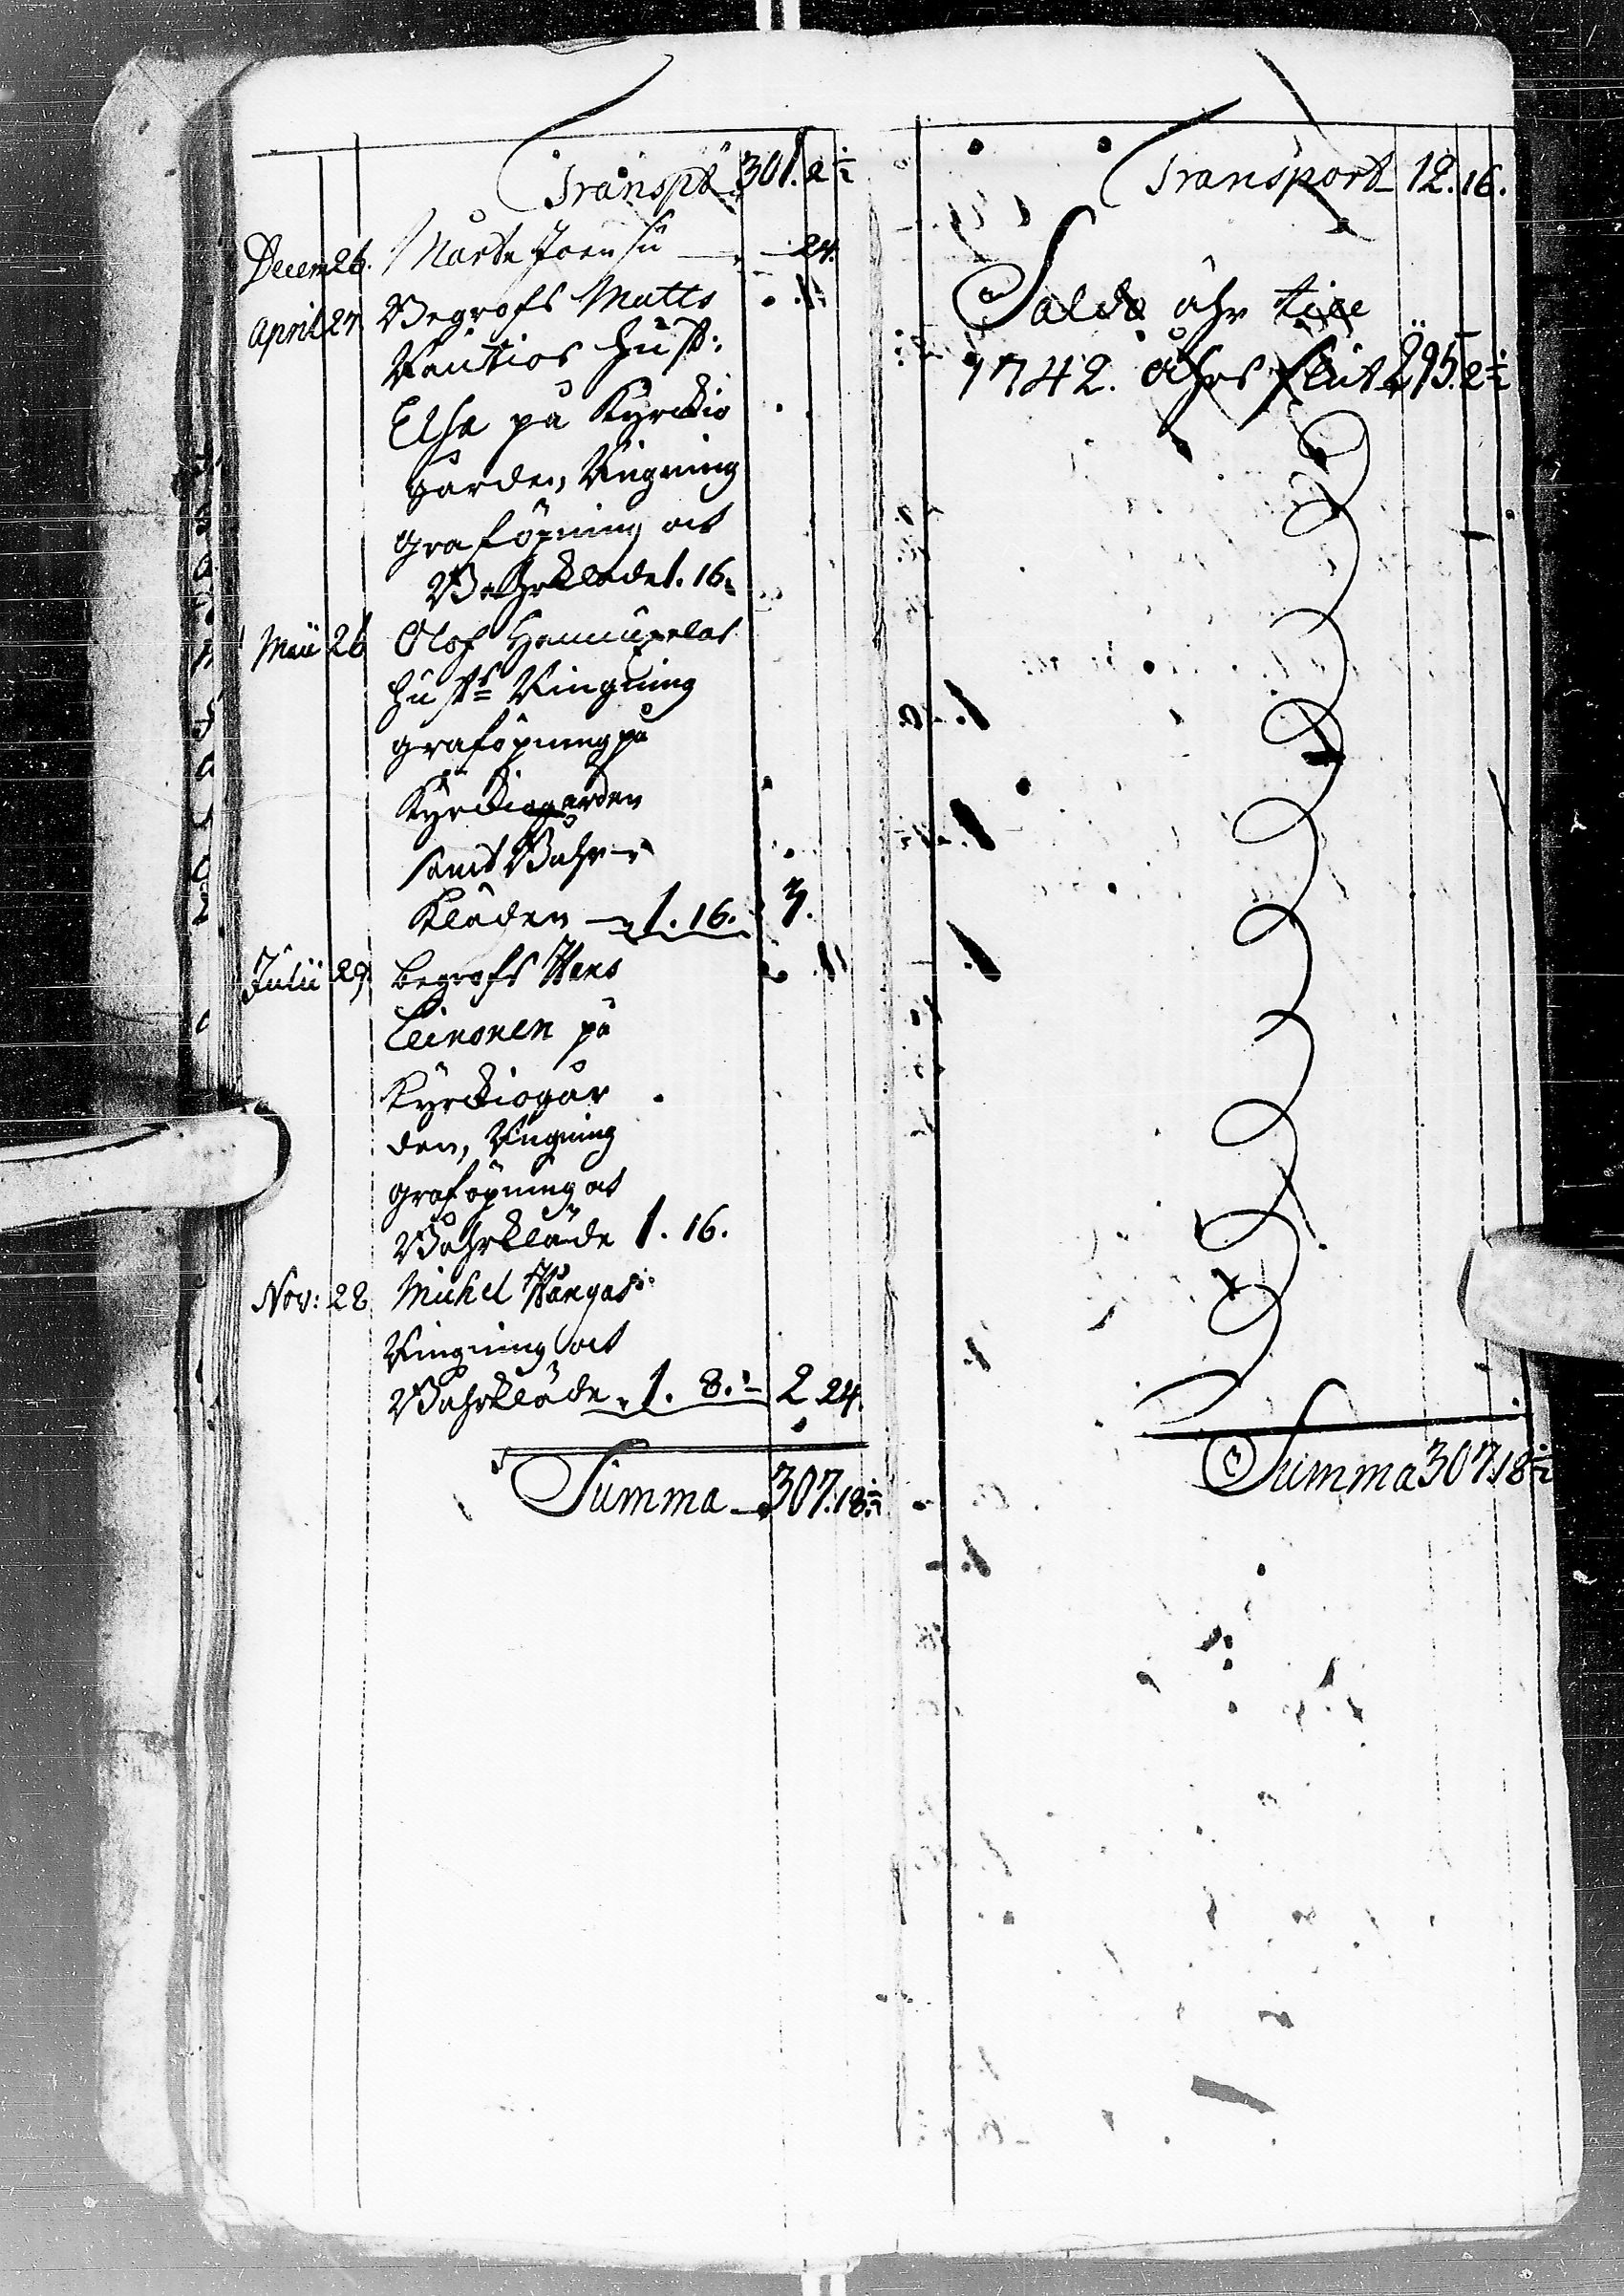 Transpt 301. 2 1/2
Decem 26. Marte Joensu — 24.
April 27 Begrofs Matts
Vautios hust:
Elsa på Kyrckio
gården, Ringning
graföpning och
Bahrkläde 1. 16.
Maii 26 Olof
hustr Ringning
graföpning på
Kyrckiogården
samt Bahr-
kläden — 1. 16. 3.
Julii 29. begrofs Hans
Leinonen på
Kyrckiogår
den, Ringning
graföpning och
Bahrkläde 1. 16.
Nov: 28 Michel Kangas:
Ringning och
Bahrkläde 1. 8. 2 24.
Summa — 307. 18 1/2
Transport 12. 16.
Saldo ähr till
1742. åhrs slut 295. 2 1/2
Summa 307. 18 1/2